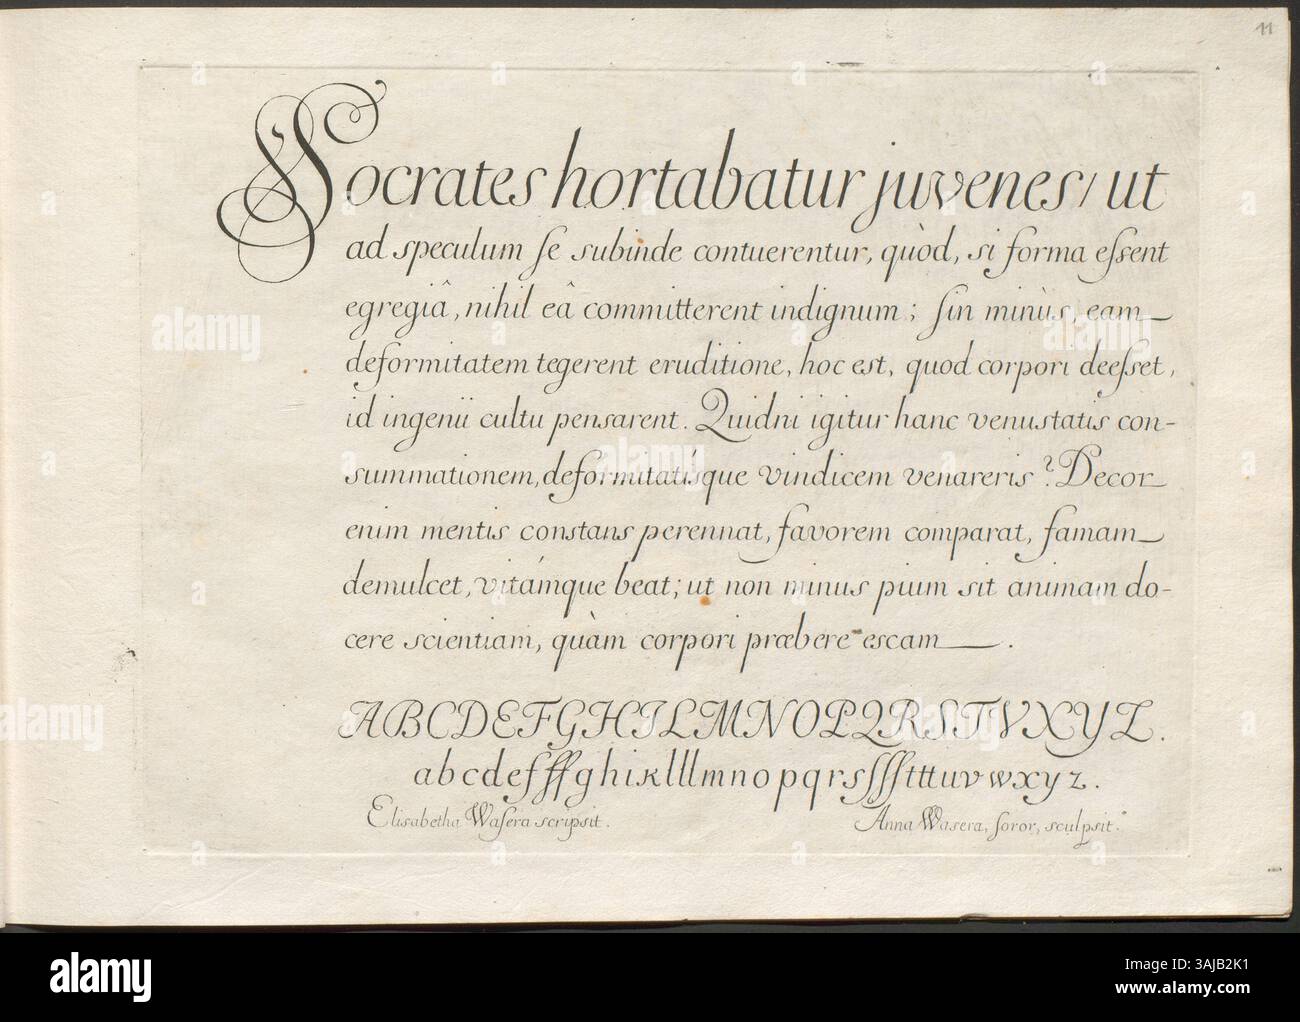 11
Socrates hortabatur juvenes, ut
ad speculum se subinde contuerentur, quòd, si forma essent
egregiâ, nihil eâ committerent indignum; sin minùs, eam
deformitatem tegerent eruditione, hoc est, quod corpori deesset,
id ingenii cultu pensarent. Quidni igitur hanc venustatis con-
summationem, deformitatisque vindicem venareris? Decor
enim mentis constans perennat, favorem comparat, famam
demulcet, vitámque beat; ut non minus pium sit animam do-
cere scientiam, quàm corpori præbere escam.
ABCDEFGHILMNOPQRSTVXYZ.
abcdefſffghiklllmnopqrsſſſtttuvwxyz.
Elisabetha Wasera scripsit. Anna Wasera, soror, sculpsit.
alamy
Image ID: 3AJB2K1
www.alamy.com